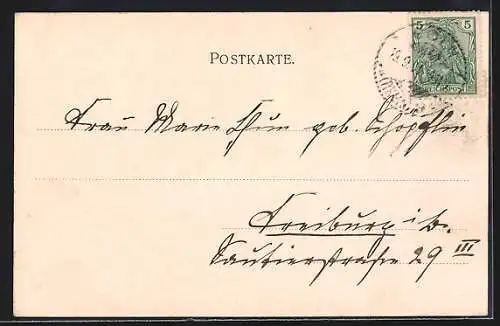 5 5
POSTKARTE.
Frau Marie Thum geb. Schöpflin
Freiburg i. B.
Sautierstraße 29 III